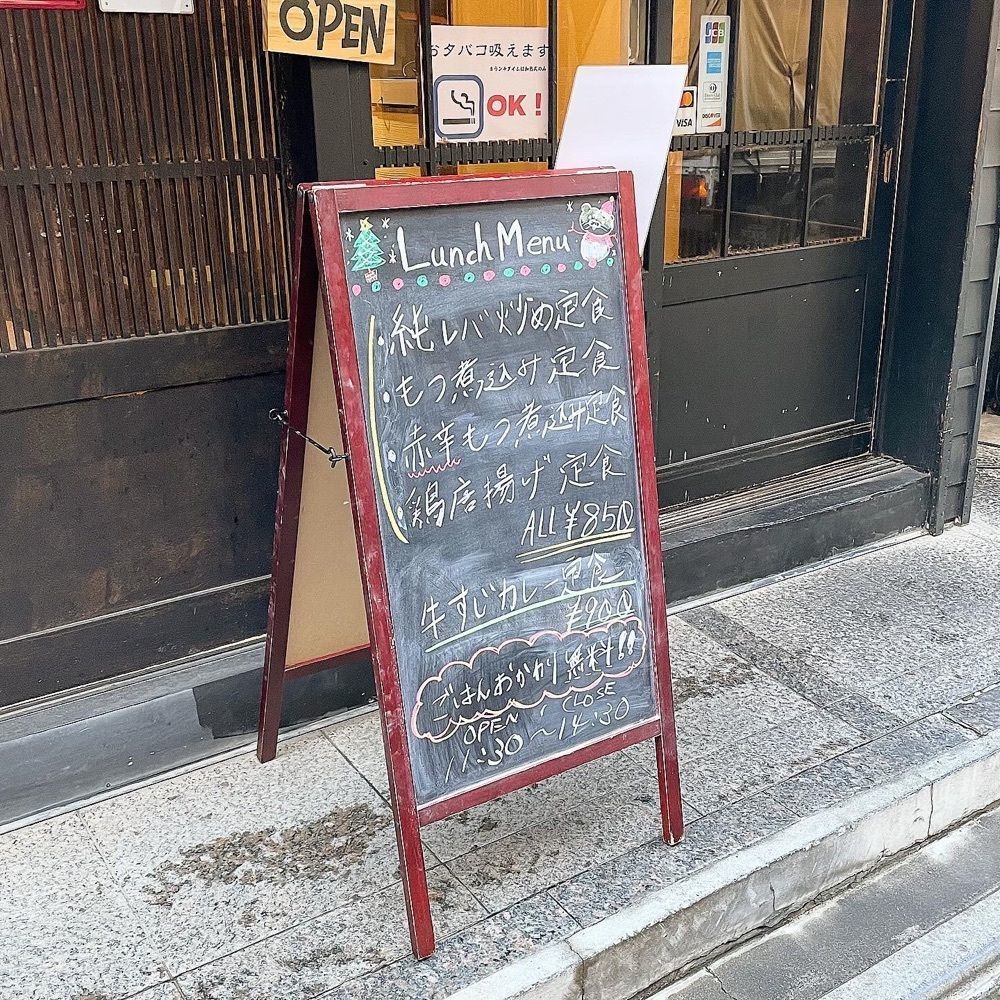 OPEN
おタバコ吸えます
OK!
JCB
VISA
DISCOVER
Lunch Menu
・純レバ炒め定食
・もつ煮込み定食
・赤辛もつ煮込み定食
・鶏唐揚げ定食
ALL ¥850
牛すじカレー定食
¥900
ごはんおかわり無料!!
OPEN CLOSE
11:30~14:30